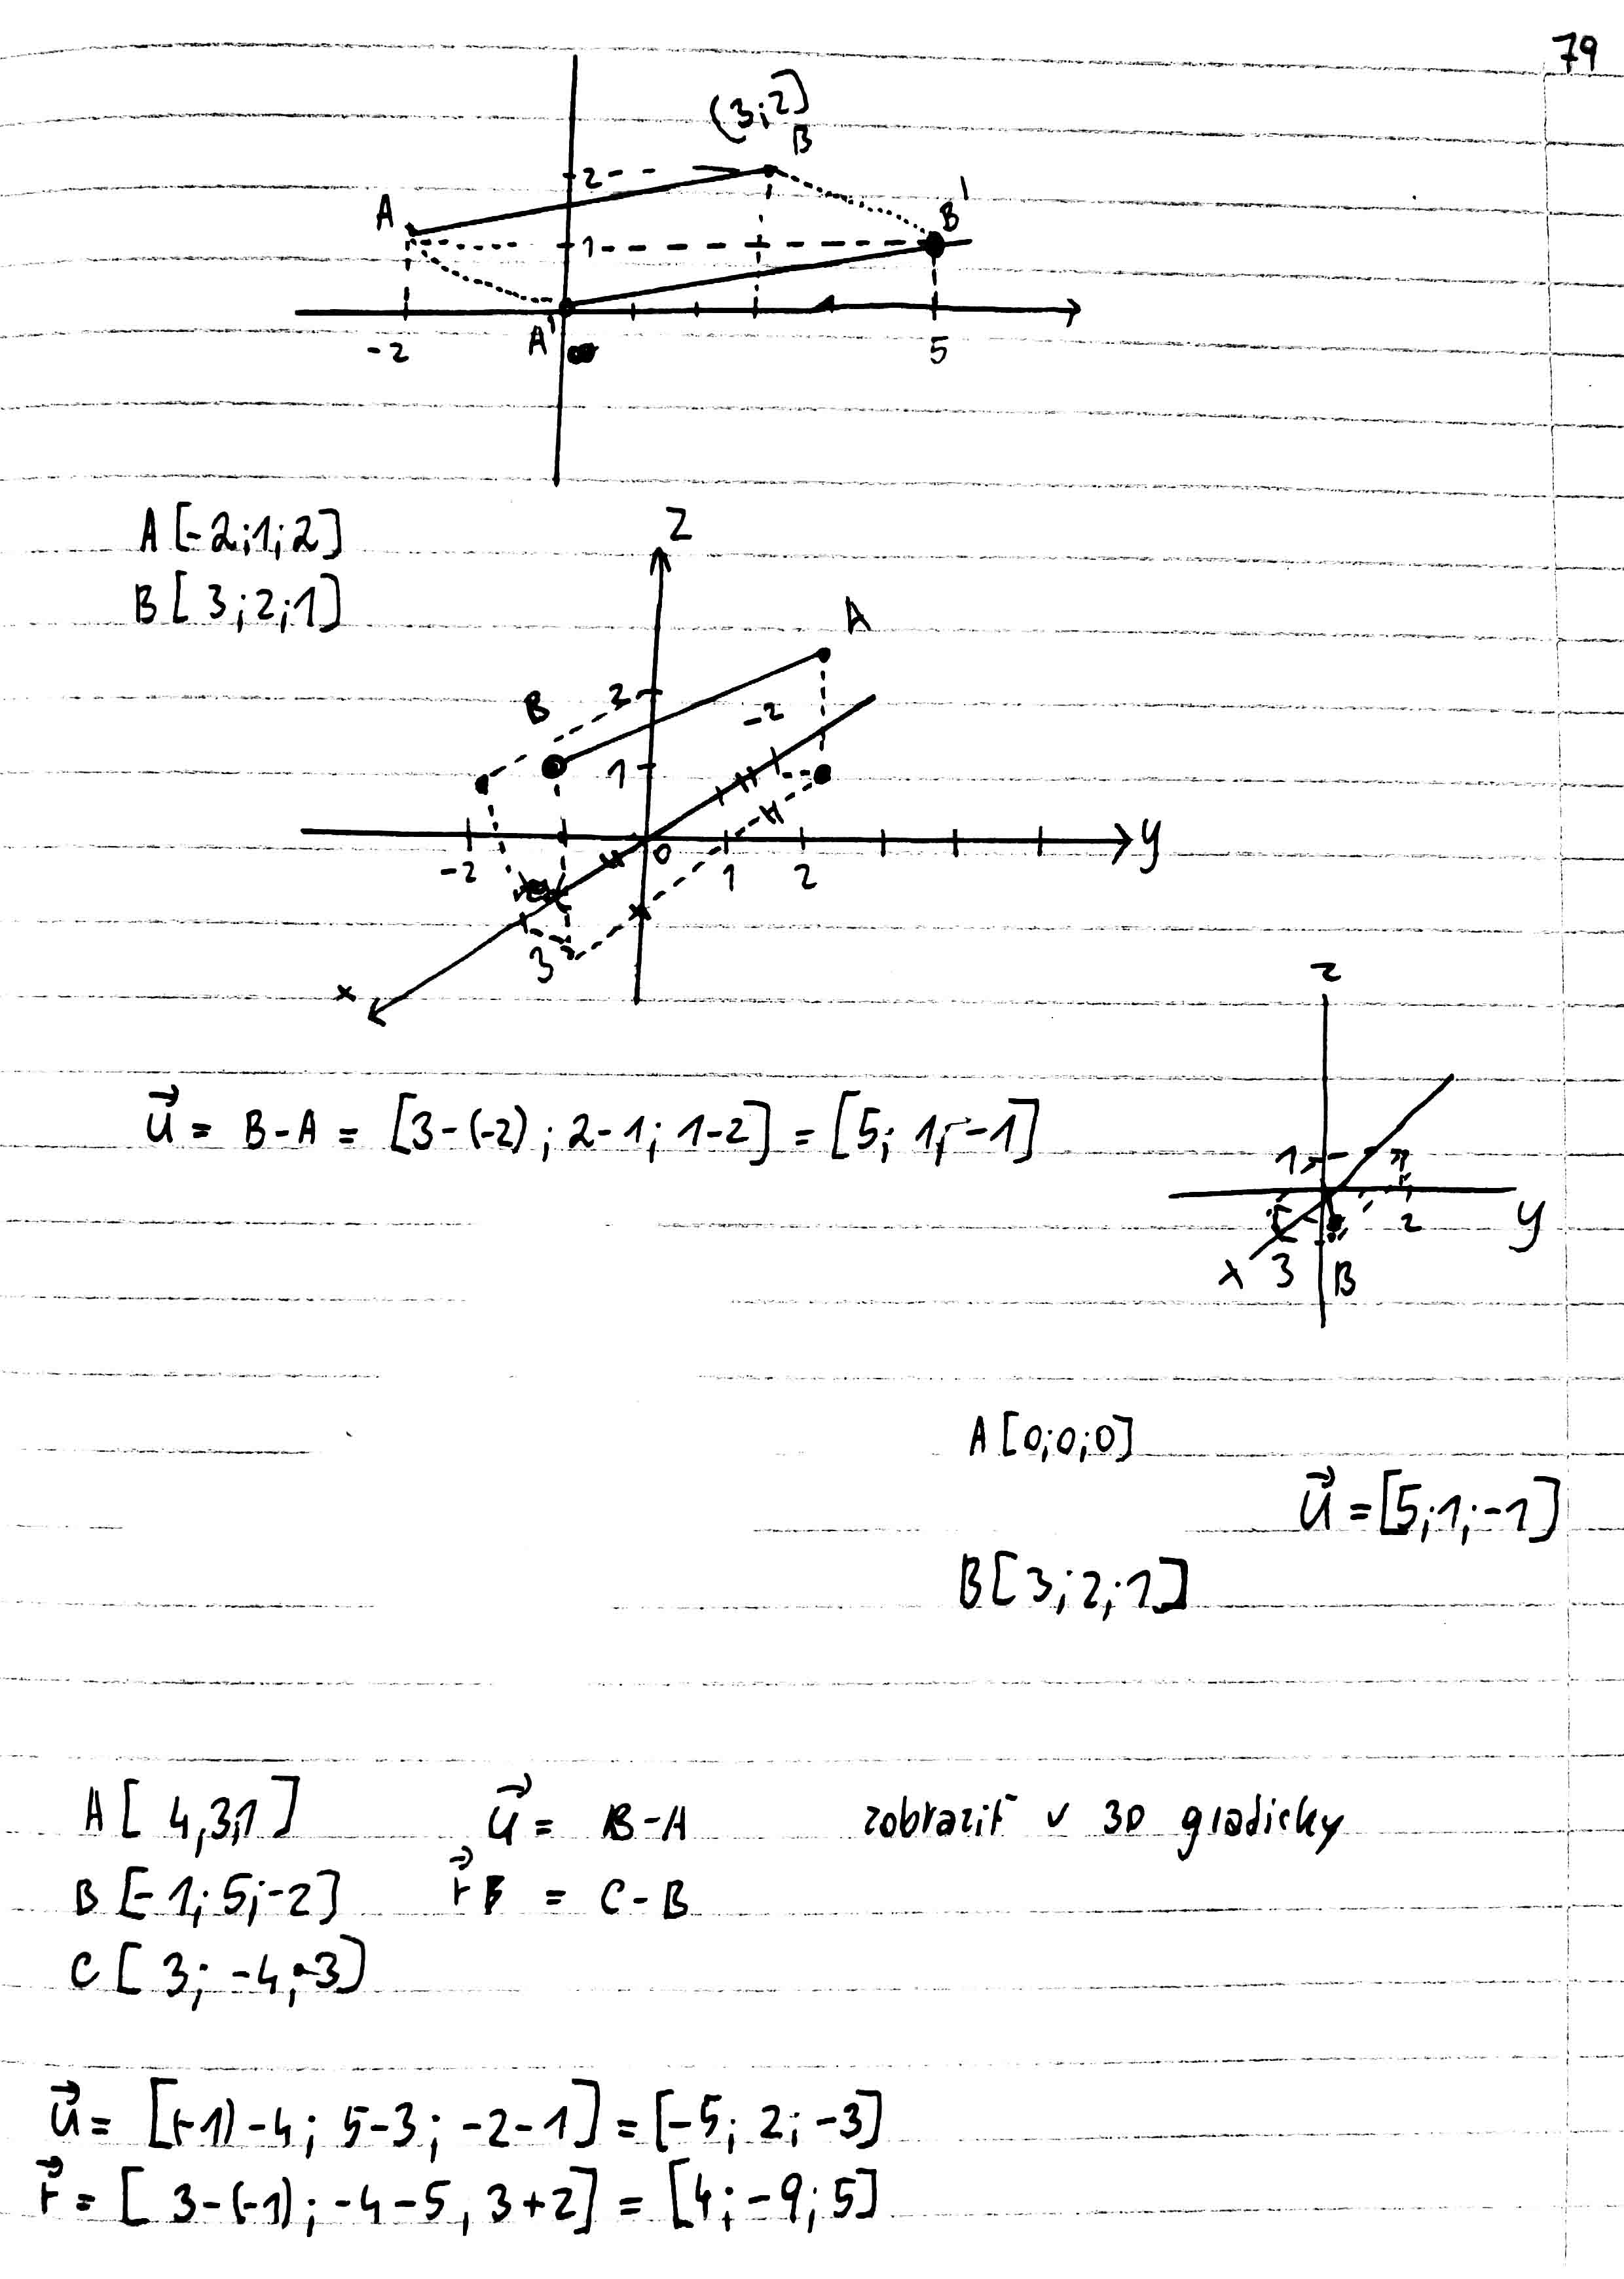 79
(3;2]
B
2
A
B'
1
-2
A'
5
A[-2;1;2]
B[3;2;1]
z
A
B
2
-2
1
y
0
-2
1
2
3
x
z
u⃗ = B-A = [3-(-2); 2-1; 1-2] = [5; 1; -1]
1
y
2
x 3 B
A[0;0;0]
u⃗ = [5;1;-1]
B[3;2;1]
A[4,3,1] u⃗ = B-A zobraziť v 3D graficky
B[-1; 5; -2] = C-B
C[3; -4; 3]
u⃗ = [(-1)-4; 5-3; -2-1] = [-5; 2; -3]
r⃗ = [3-(-1); -4-5, 3+2] = [4; -9; 5]